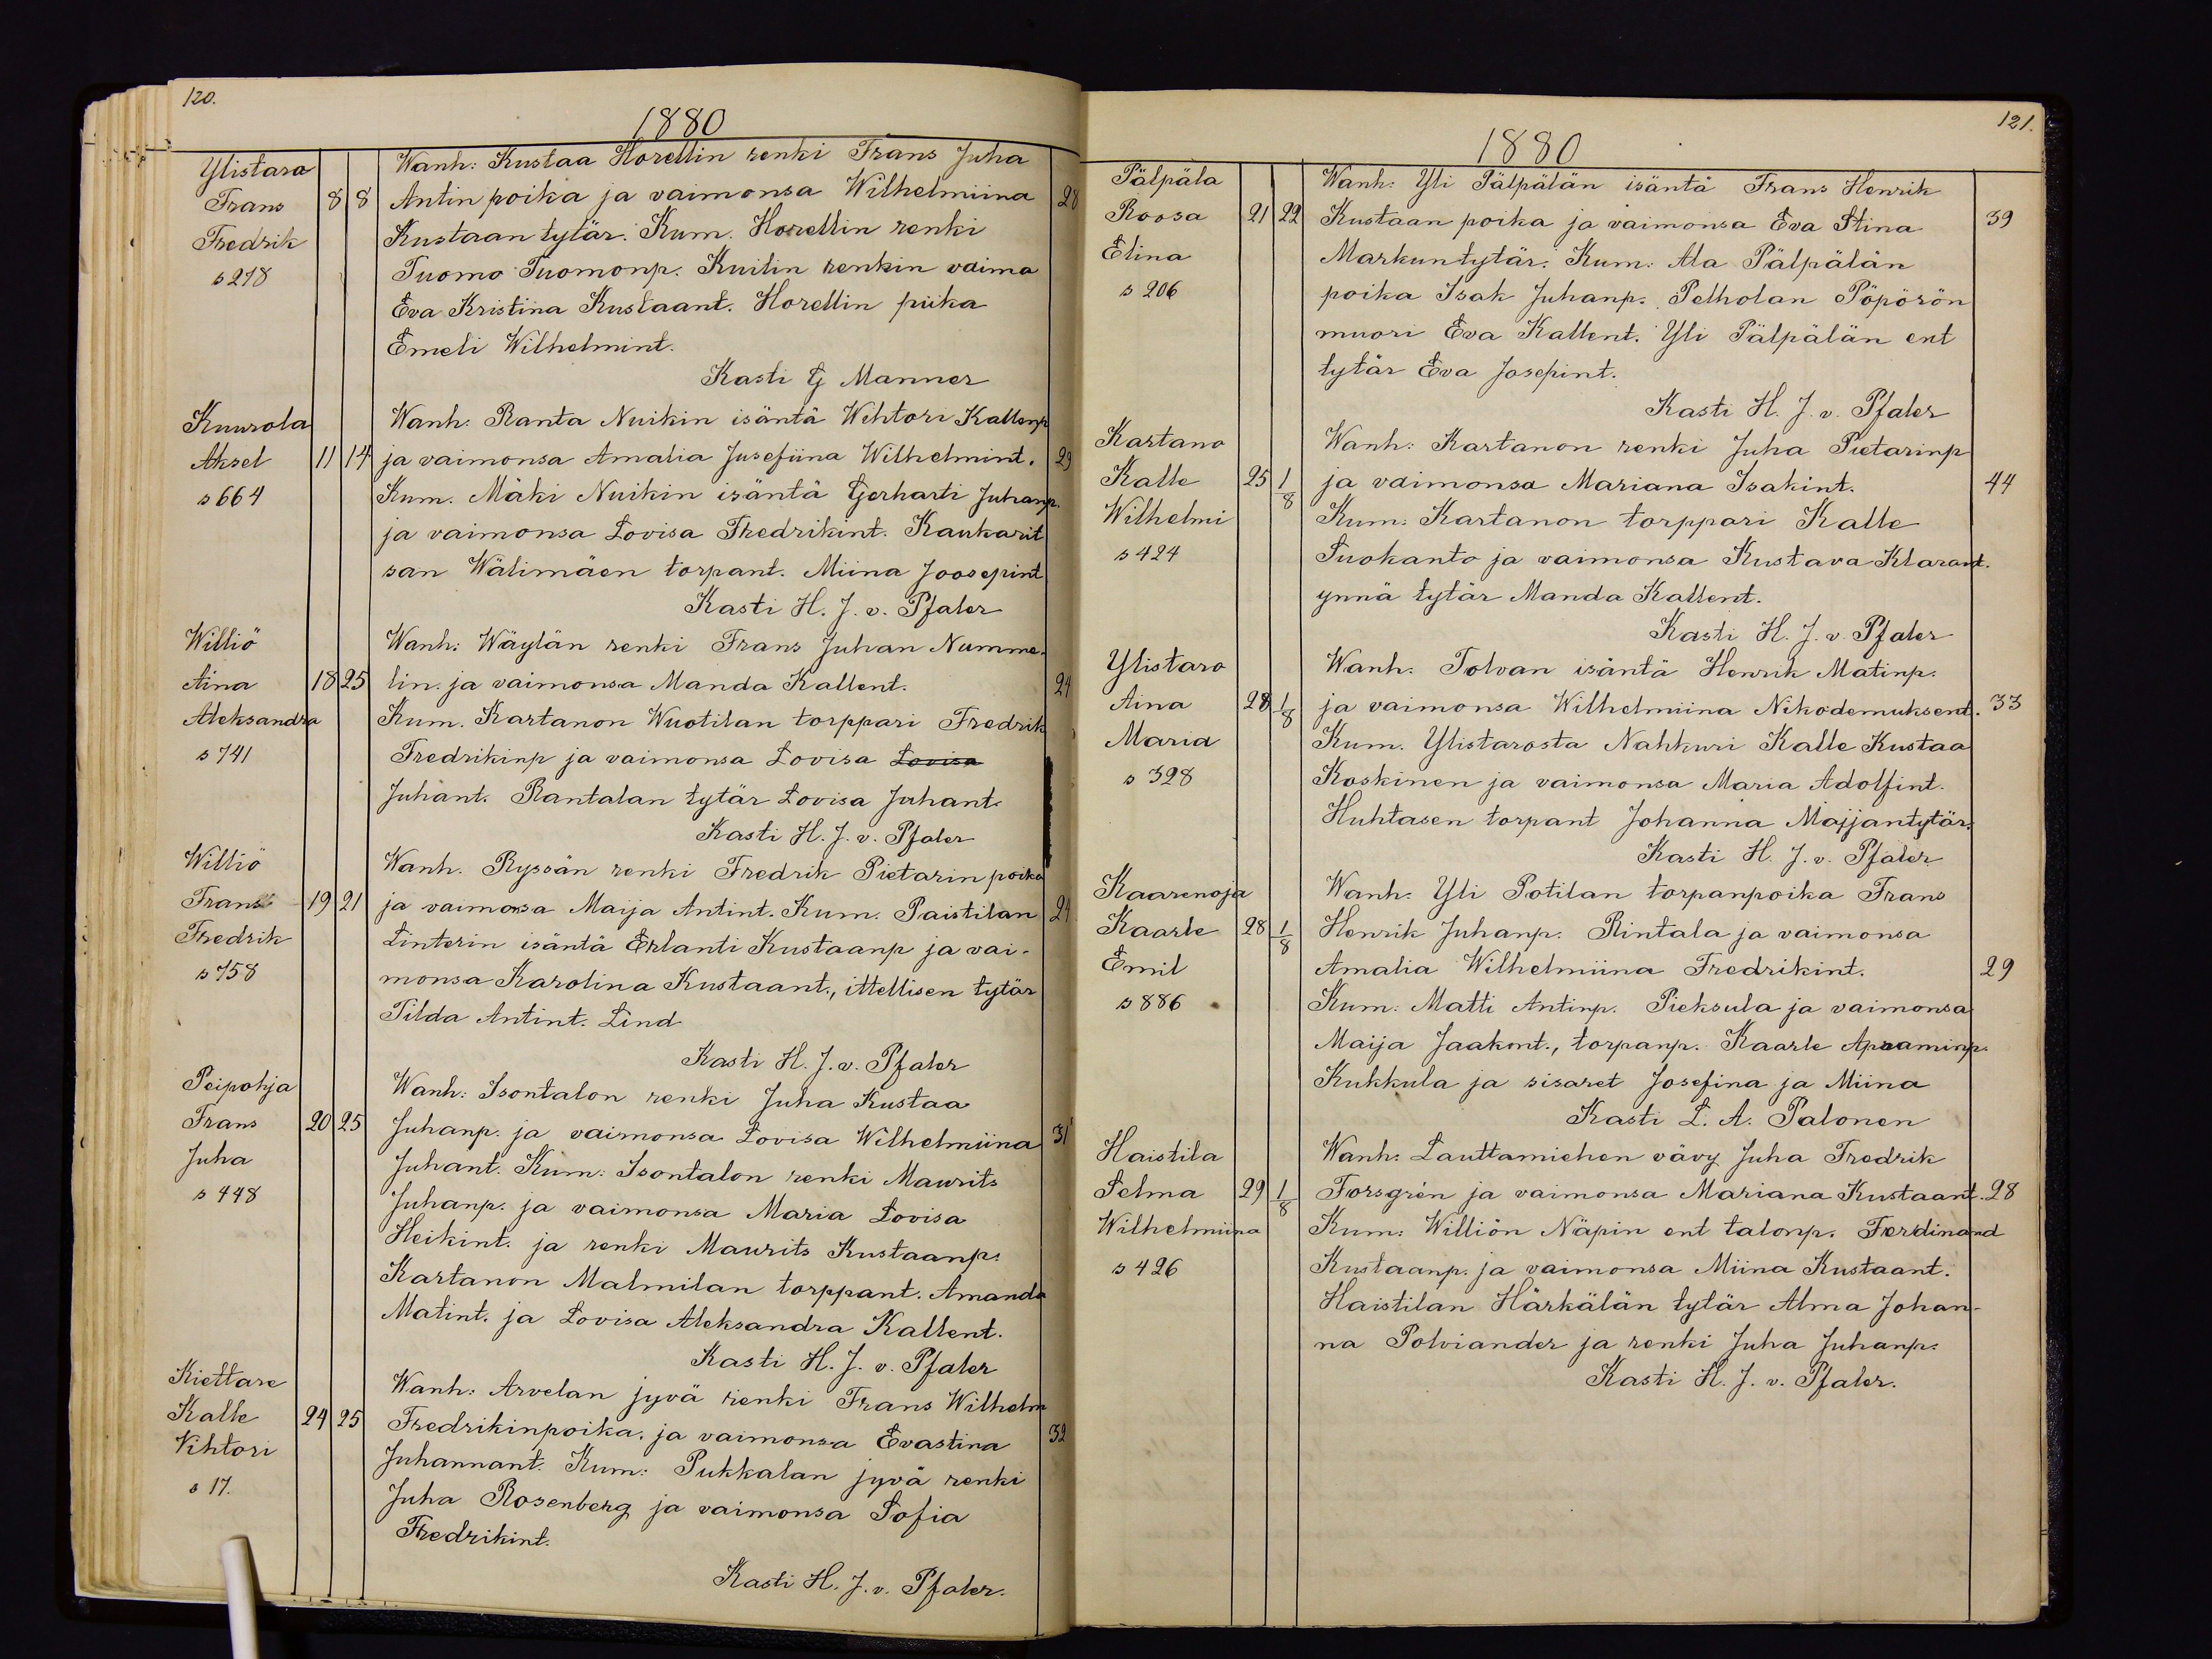 120.
1880
Ylistara Wanh: Kustaa Horellin renki Frans Juha
Frans 8 8 Antin poika ja vaimonsa Wilhelmiina 28
Fredrik Kustaan tytär. Kum. Horellin renki
s 278 Tuomo Tuomonp. Kuilin renkin vaimo
Eva Kristina Kustaant. Horellin piika
Emeli Wilhelmint.
Kasti G Manner
Kuurola Wanh: Ranta Nuikin isäntä Wihtori Kallenp
Aksel 11 14 ja vaimonsa Amalia Jusefiina Wilhelmint. 29
s 664 Kum. Mäki Nuikin isäntä Gerharti Juhanp.
ja vaimonsa Lovisa Fredrikint. Kaukarit
san Wälimäen torpant. Miina Joosepint
Kasti H. J. v. Pfaler
Williö Wanh: Wäylän renki Frans Juhan Numme-
Aina 18 25 lin. ja vaimonsa Manda Kallent. 24
Aleksandra Kum. Kartanon Wuotilan torppari Fredrik
s 741 Fredrikinp ja vaimonsa Lovisa Lovisa
Juhant. Rantalan tytär Lovisa Juhant.
Kasti H. J. v. Pfaler
Williö Wanh. Ryssän renki Fredrik Pietarin poika
Frans 19 21 ja vaimonsa Maija Antint. Kum. Paistilan 24
Fredrik Linterin isäntä Erlanti Kustaanp ja vai-
s 758 monsa Karolina Kustaant., ittellisen tytär
Tilda Antint. Lind
Kasti H. J. v. Pfaler
Peipohja Wanh: Isontalon renki Juha Kustaa
Frans 20 25 Juhanp. ja vaimonsa Lovisa Wilhelmiina 31
Juha Juhant. Kum: Isontalon renki Maurits
s 448 Juhanp. ja vaimonsa Maria Lovisa
Heikint. ja renki Maurits Kustaanp.
Kartanon Malmilan torppant. Amanda
Matint. ja Lovisa Aleksandra Kallent.
Kasti H. J. v. Pfaler
Kiettare Wanh: Arvelan jyvä renki Frans Wilhelm
Kalle 24 25 Fredrikinpoika. ja vaimonsa Evastina 32
Vihtori Juhannant. Kum: Pukkalan jyvä renki
s 17. Juha Rosenberg ja vaimonsa Sofia
Fredrikint.
Kasti H. J. v. Pfaler.
121.
1880
Pälpäla Wanh: Yli Pälpälän isäntä Frans Henrik
Roosa 21 22 Kustaan poika ja vaimonsa Eva Stina 39
Elina Markuntytär. Kum: Ala Pälpälän
s 206 poika Isak Juhanp. Pelholan Pöpörön
muori Eva Kallent. Yli Pälpälän ent
tytär Eva Josepint.
Kasti H. J. v. Pfaler
Kartano Wanh: Kartanon renki Juha Pietarinp
Kalle 25 1/8 ja vaimonsa Mariana Isakint. 44
Wilhelmi Kum: Kartanon torppari Kalle
s 424 Suokanto ja vaimonsa Kustava Klarant.
ynnä tytär Manda Kallent.
Kasti H. J. v. Pfaler
Ylistaro Wanh: Tolvan isäntä Henrik Matinp.
Aina 28 1/8 ja vaimonsa Wilhelmiina Nikodemuksent. 33
Maria Kum. Ylistarosta Nahkuri Kalle Kustaa
s 328 Koskinen ja vaimonsa Maria Adolfint.
Huhtasen torpant Johanna Maijantytär.
Kasti H. J. v. Pfaler
Kaarenoja Wanh. Yli Potilan torpanpoika Frans
Kaarle 28 1/8 Henrik Juhanp. Rintala ja vaimonsa
Emil Amalia Wilhelmiina Fredrikint. 29
s 886 Kum: Matti Antinp. Pieksula ja vaimonsa
Maija Jaakont., torpanp. Kaarle Apraminp.
Kukkula ja sisaret Josefina ja Miina
Kasti L. A. Palonen
Haistila Wanh: Lauttamiehen vävy Juha Fredrik
Selma 29 1/8 Forsgrén ja vaimonsa Mariana Kustaant. 28
Wilhelmiina Kum: Williön Näpin ent talonp. Ferdinand
s 426 Kustaanp. ja vaimonsa Miina Kustaant.
Haistilan Härkälän tytär Alma Johan-
na Polviander ja renki Juha Juhanp.
Kasti H. J. v. Pfaler.